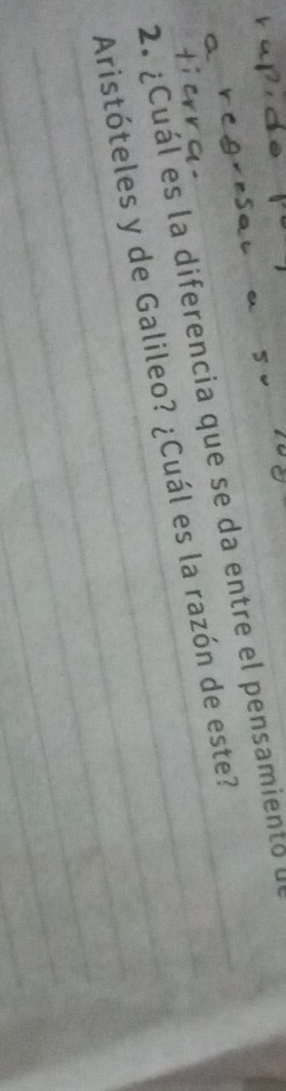 rapido
a regresar a su
tierra.
2. ¿Cuál es la diferencia que se da entre el pensamiento de
Aristóteles y de Galileo? ¿Cuál es la razón de este?